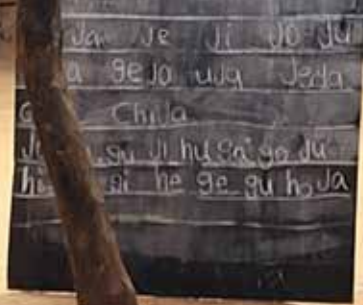 Ja Je Ji Jo Ju
a geJo uJa JeJa
Chi Ja
gu Ji hu ga go Ju
hi gi he ge gu ho Ja